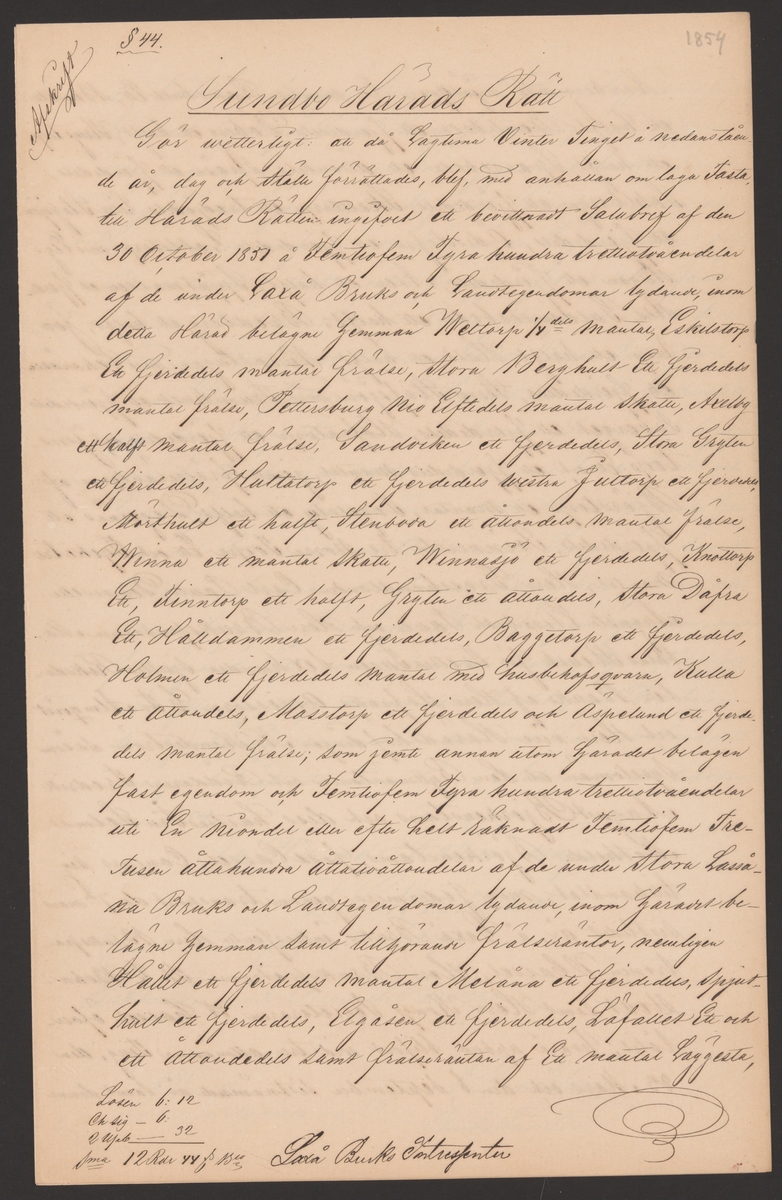 § 44.
1854
Afskrift
Sundbo Häräds Rätt
Gör wetterligt: att då Lagtima Vinter Tinget å nedanståen-
de år, dag och ställe förrättades, blef, med anhållan om laga Fasta,
till Häräds Rätten ingifvet ett bevittnadt Salubref af den
30 October 1851 å Femtiofem Fyra hundra trettiotvåendelar
af de under Laxå Bruks och Landtegendomar lydande, inom
detta Härad belägne Hemman Wettorp 1/4 dels mantal, Eskilstorp
Ett fjerdedels mantal frälse, Stora Berghult Ett fjerdedels
mantal frälse, Pottersburg Nio Elftedels mantal Skatte, Axelby
ett halft mantal frälse, Sandviken ett fjerdedels, Stora Gryten
ett fjerdedels, Hultatorp ett fjerdedels westra Jultorp ett fjerdedels,
Mörthult ett halft, Stenboda ett åttondels mantal frälse,
Winna ett mantal Skatte, Winnasjö ett fjerdedels, Knottorp
Ett, Finntorp ett halft, Gryten ett åttondels, Stora Dåfra
Ett, Hålldammen ett fjerdedels, Baggetorp ett fjerdedels,
Holmen ett fjerdedels mantal med husbehofsqvarn, Kulla
ett åttondels, Mosstorp ett fjerdedels och Äspelund ett fjerde-
dels mantal frälse; som jemte annan utom Häradet belägen
fast egendom och Femtiofem Fyra hundra trettiotvåendelar
uti En Niondel eller efter helt räknadt Femtiofem Tre-
Tusen åttahundra åttatioåttondelar af de under Stora Lasså-
na Bruks och Landtegendomar lydande, inom Häradet be-
lägne Hemman samt tillhörande frälseräntor, nemligen
Hålet ett fjerdedels mantal Metåna ett fjerdedels, Spjut-
hult ett fjerdedels, Elgåsen ett fjerdedels, Löfallet Ett och
ett åttondedels samt frälseräntan af Ett mantal Läggesta,
Lösen 6: 12
Ch Sig – 6
2 Uppb — 32
Sma 12 Rdr 44 s B:co
Laxå Bruks